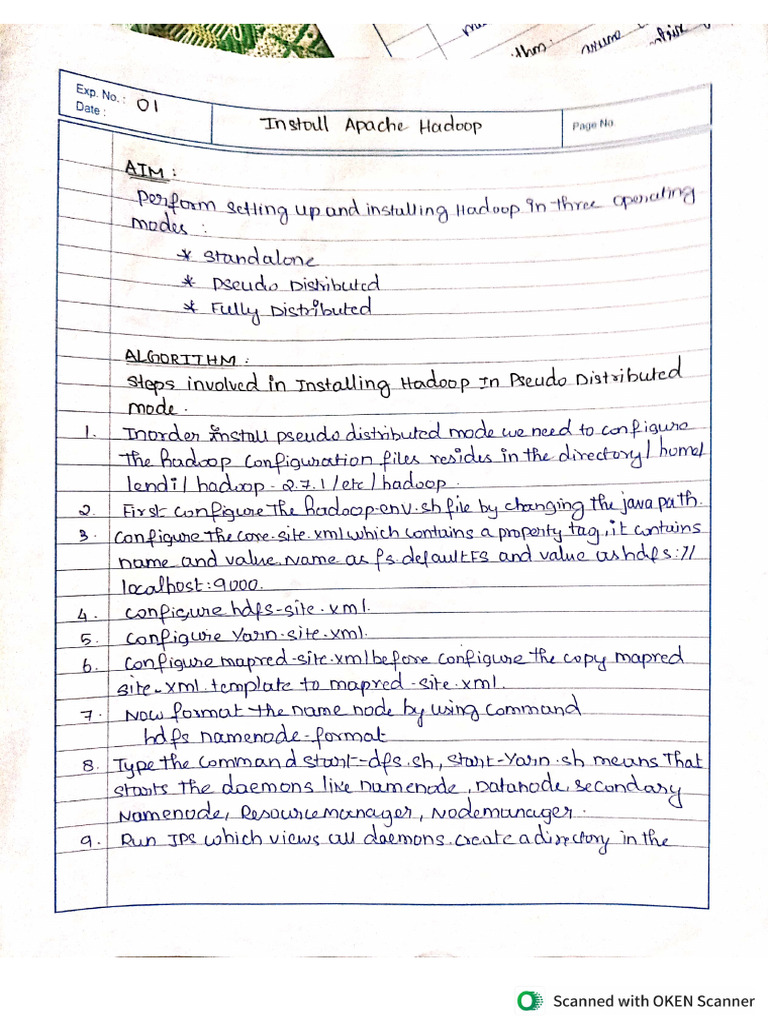 Exp. No. : 01
Date :
Install Apache Hadoop
Page No.
AIM :
Perform setting up and installing Hadoop in three operating
modes :
* Standalone
* Pseudo Distributed
* Fully Distributed
ALGORITHM :
Steps involved in Installing Hadoop In Pseudo Distributed
mode.
1. Inorder install pseudo distributed mode we need to configure
the hadoop configuration files resides in the directory / home/
lendi / hadoop - 2.7.1 / etc / hadoop.
2. First configure the hadoop-env.sh file by changing the java path.
3. Configure the core-site.xml which contains a property tag, it contains
name and value. Name as fs.defaultFS and value as hdfs://
localhost:9000.
4. configure hdfs-site.xml.
5. configure Yarn-site.xml.
6. Configure mapred-site.xml before configure the copy mapred
site-xml.template to mapred-site.xml.
7. Now format the name node by using command
hdfs namenode-format
8. Type the command start-dfs.sh, start-Yarn.sh means That
starts the daemons like Namenode, Datanode, secondary
Namenode, Resourcemanager, Nodemanager.
9. Run JPS which views all daemons. create a directory in the
Scanned with OKEN Scanner